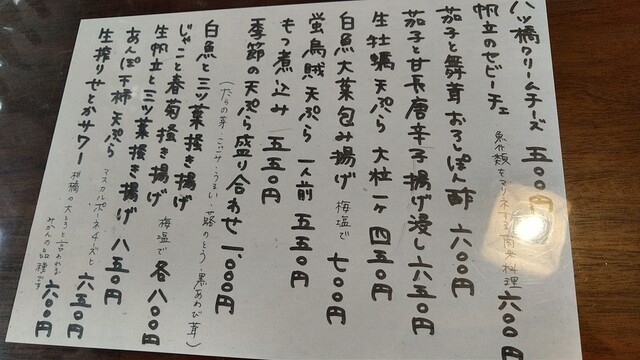 八ッ橋クリームチーズ 五〇〇円
帆立のセビーチェ 魚介類をマリネする南米料理 六〇〇円
茄子と舞茸おろしぽん酢 六〇〇円
茄子と甘長唐辛子揚げ浸し 六五〇円
生牡蠣天ぷら 大粒一ヶ 四五〇円
白魚大葉包み揚げ 梅塩で 七〇〇円
蛍烏賊天ぷら 一人前 五五〇円
もつ煮込み 五五〇円
季節の天ぷら盛り合わせ 一、〇〇〇円
(たらの芽・こごみ・うるい・蕗のとう・黒あわび茸)
白魚と三ツ葉掻き揚げ
じゃこと春菊掻き揚げ
生帆立と三ツ葉掻き揚げ 梅塩で 各八〇〇円
あんぽ干柿天ぷら マスカルポーネチーズと 六五〇円
生搾りせとかサワー 柑橘の大トロと言われるみかんの品種です 六〇〇円
掻き揚げ 八五〇円